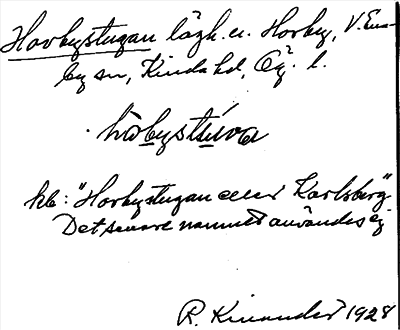 Horbystugan lägh. u. Horby, V. Ene-
by sn, Kinda hd, Ög. l.
hórbystúva
kb: "Horbystugan eller Karlsberg"
Det senare namnet användes ej
R. Kinander 1928